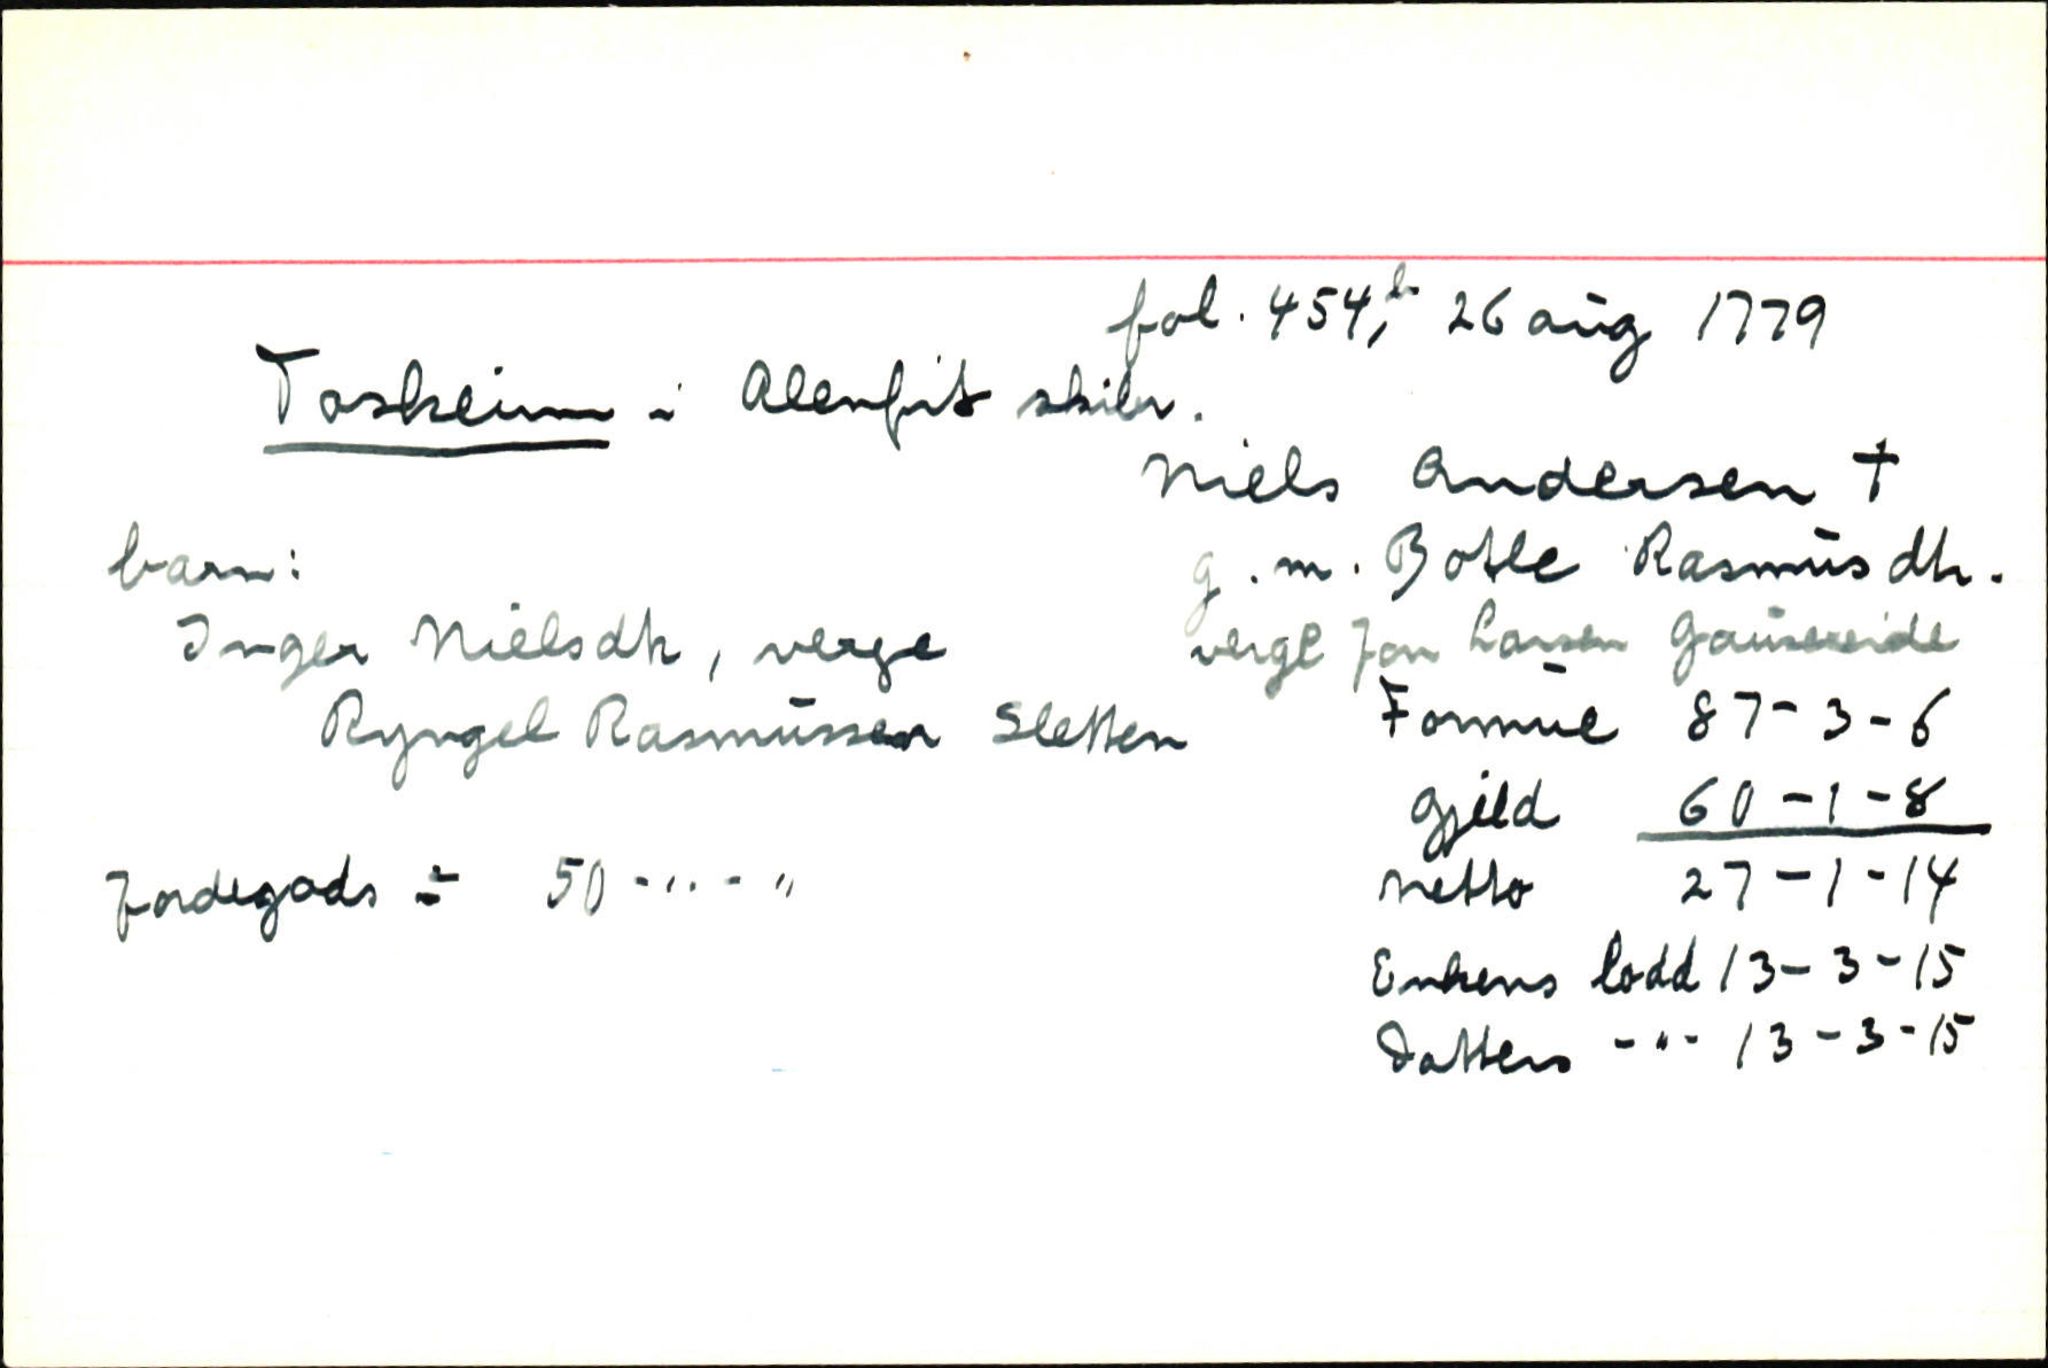 fol. 454,b 26 aug 1779
Toskeim i Alenfit skibr.
Niels Andersen †
barn:
g.m. Botle Rasmusdtr.
Inger Nielsdtr, verge
verge Jon Larsen Gausereide
Ryngel Rasmussen Sletten
Formue 87-3-6
Gjeld 60-1-8
Jordegods ÷ 50-"-"
Netto 27-1-14
Enkens lodd 13-3-15
Datters -"- 13-3-15